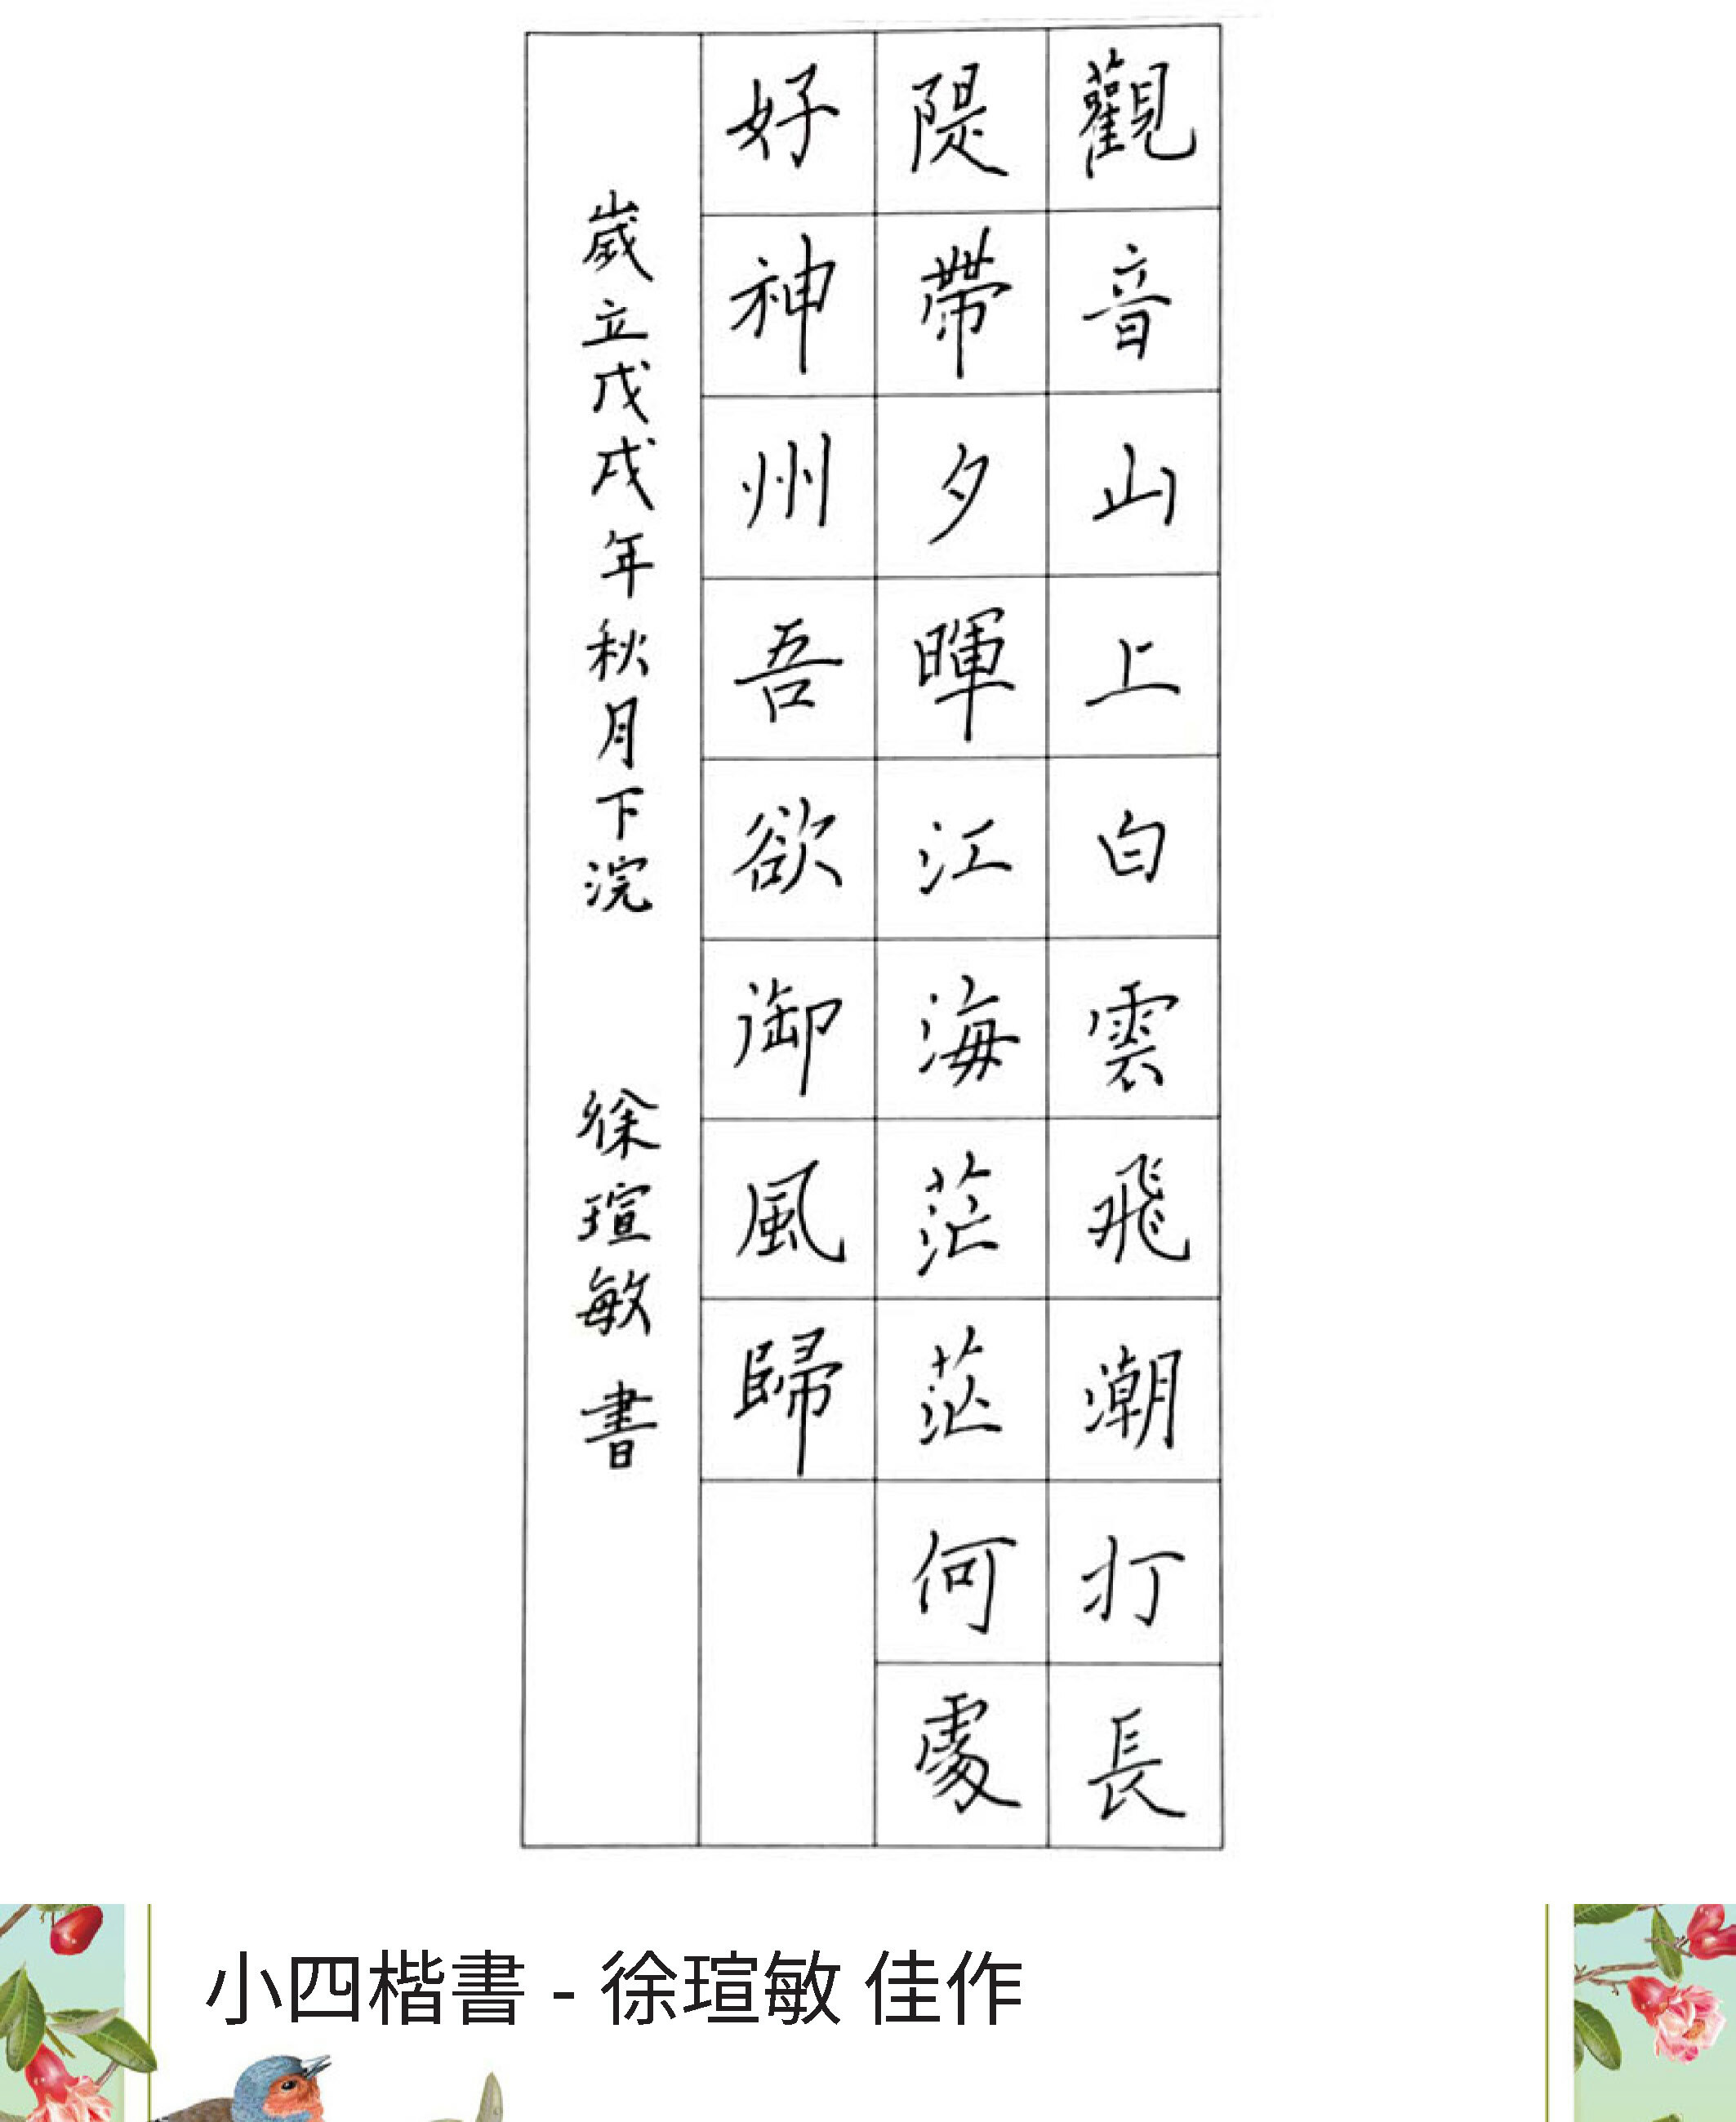 觀音山上白雲飛潮打長
隄帶夕暉江海茫茫何處
好神州吾欲御風歸
歲立戊戌年秋月下浣 徐瑄敏書
小四楷書 - 徐瑄敏 佳作